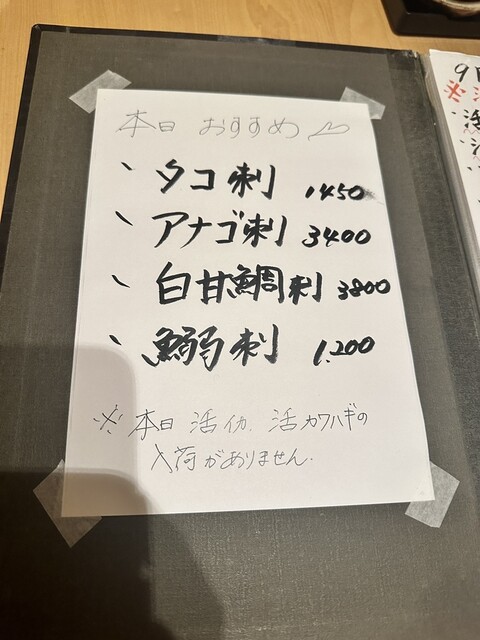 本日 おすすめ
、タコ刺 1450
、アナゴ刺 3400
、白甘鯛刺 3800
、鰯刺 1.200
※ 本日 活イカ、活カワハギの
入荷がありません.
9
※